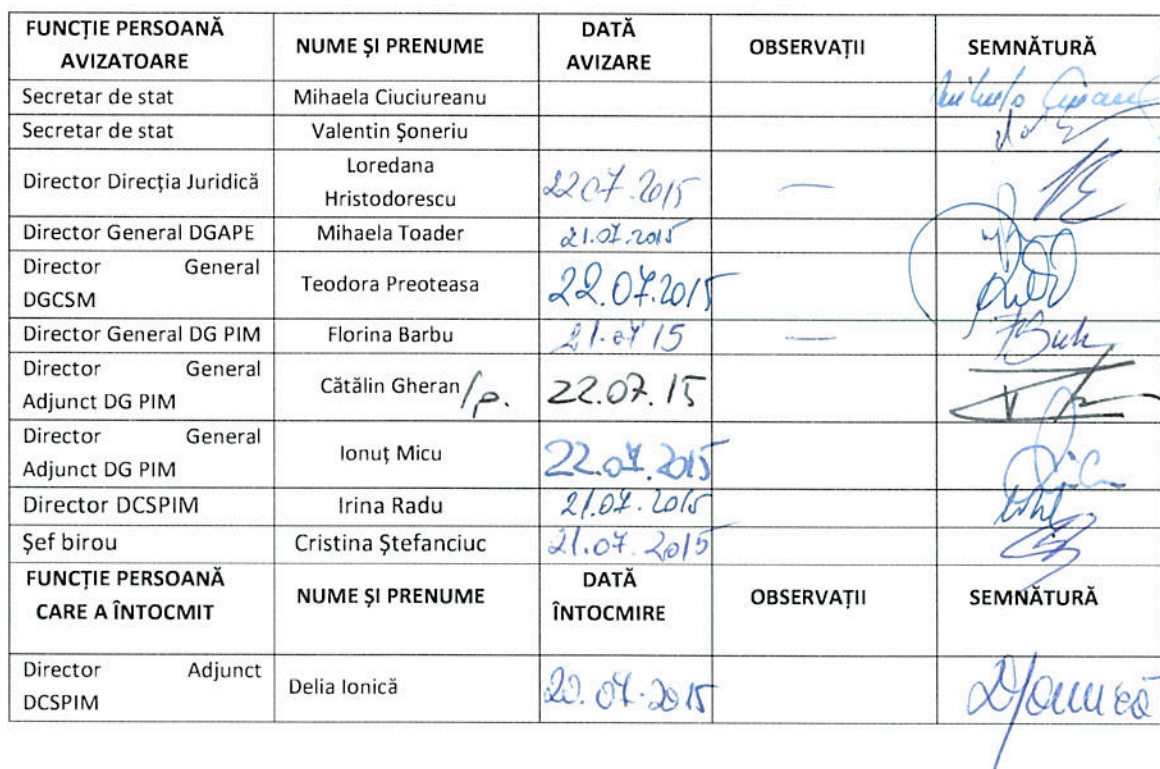 FUNCȚIE PERSOANĂ AVIZATOARE NUME ȘI PRENUME DATĂ AVIZARE OBSERVAȚII SEMNĂTURĂ
Secretar de stat Mihaela Ciuciureanu
Secretar de stat Valentin Șoneriu
Director Direcția Juridică Loredana Hristodorescu 22.07.2015 —
Director General DGAPE Mihaela Toader 21.07.2015
Director General DGCSM Teodora Preoteasa 22.07.2015
Director General DG PIM Florina Barbu 21.07 15 —
Director General Adjunct DG PIM Cătălin Gheran /p. 22.07.15
Director General Adjunct DG PIM Ionuț Micu 22.07.2015
Director DCSPIM Irina Radu 21.07.2015
Șef birou Cristina Ștefanciuc 21.07.2015
FUNCȚIE PERSOANĂ CARE A ÎNTOCMIT NUME ȘI PRENUME DATĂ ÎNTOCMIRE OBSERVAȚII SEMNĂTURĂ
Director Adjunct DCSPIM Delia Ionică 20.07.2015